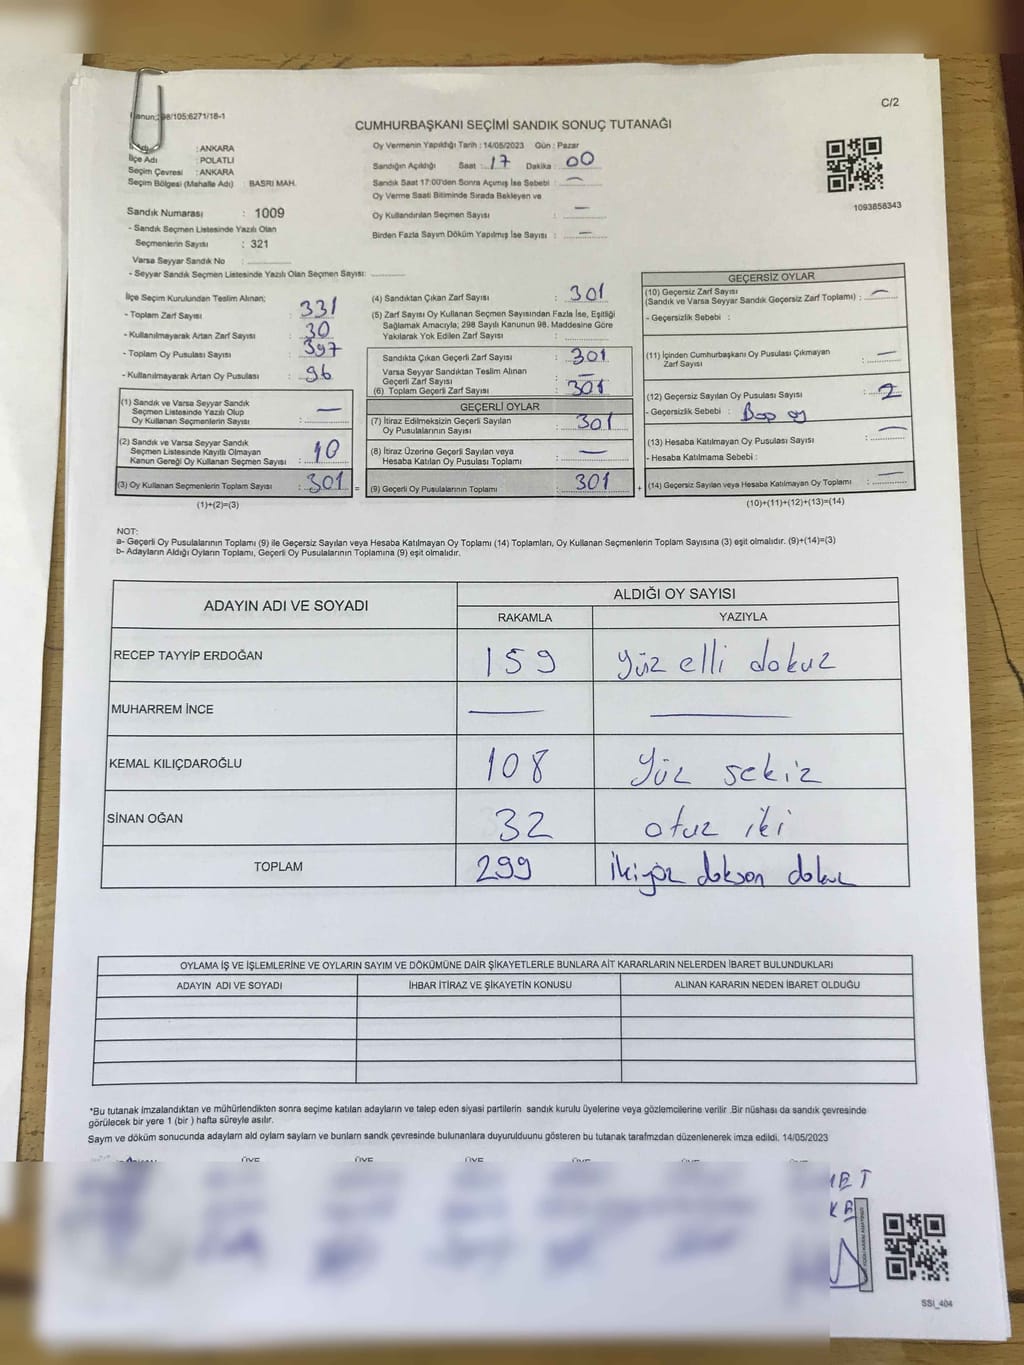 C/2
CUMHURBAŞKANI SEÇİMİ SANDIK SONUÇ TUTANAĞI
98/105:6271/18-1
: ANKARA
İlçe Adı : POLATLI
Seçim Çevresi : ANKARA
Seçim Bölgesi (Mahalle Adı) BASRI MAH.
Oy Vermenin Yapıldığı Tarih : 14/05/2023 Gün : Pazar
Sandığın Açıldığı Saat : 17 Dakika : 00
Sandık Saat 17:00'den Sonra Açımış İse Sebebi : —
Oy Verme Saati Bitiminde Sırada Bekleyen ve
Oy Kullandırılan Seçmen Sayısı : —
Birden Fazla Sayım Döküm Yapılmış İse Sayısı : —
1093858343
Sandık Numarası : 1009
- Sandık Seçmen Listesinde Yazılı Olan
Seçmenlerin Sayısı : 321
Varsa Seyyar Sandık No :
- Seyyar Sandık Seçmen Listesinde Yazılı Olan Seçmen Sayısı:
İlçe Seçim Kurulundan Teslim Alınan;
- Toplam Zarf Sayısı : 331
- Kullanılmayarak Artan Zarf Sayısı : 30
- Toplam Oy Pusulası Sayısı : 397
- Kullanılmayarak Artan Oy Pusulası : 96
(1) Sandık ve Varsa Seyyar Sandık
Seçmen Listesinde Yazılı Olup
Oy Kullanan Seçmenlerin Sayısı : —
(2) Sandık ve Varsa Seyyar Sandık
Seçmen Listesinde Kayıtlı Olmayan
Kanun Gereği Oy Kullanan Seçmen Sayısı : 10
(3) Oy Kullanan Seçmenlerin Toplam Sayısı : 301 =
(1)+(2)=(3)
(4) Sandıktan Çıkan Zarf Sayısı : 301
(5) Zarf Sayısı Oy Kullanan Seçmen Sayısından Fazla İse, Eşitliği
Sağlamak Amacıyla; 298 Sayılı Kanunun 98. Maddesine Göre
Yakılarak Yok Edilen Zarf Sayısı :
Sandıkta Çıkan Geçerli Zarf Sayısı : 301
Varsa Seyyar Sandıktan Teslim Alınan
Geçerli Zarf Sayısı : —
(6) Toplam Geçerli Zarf Sayısı : 301
GEÇERLİ OYLAR
(7) İtiraz Edilmeksizin Geçerli Sayılan
Oy Pusulalarının Sayısı : 301
(8) İtiraz Üzerine Geçerli Sayılan veya
Hesaba Katılan Oy Pusulası Toplamı : —
(9) Geçerli Oy Pusulalarının Toplamı : 301 +
GEÇERSİZ OYLAR
(10) Geçersiz Zarf Sayısı
(Sandık ve Varsa Seyyar Sandık Geçersiz Zarf Toplamı) : —
- Geçersizlik Sebebi :
(11) İçinden Cumhurbaşkanı Oy Pusulası Çıkmayan
Zarf Sayısı : —
(12) Geçersiz Sayılan Oy Pusulası Sayısı : 2
- Geçersizlik Sebebi : Boş oy
(13) Hesaba Katılmayan Oy Pusulası Sayısı : —
- Hesaba Katılmama Sebebi :
(14) Geçersiz Sayılan veya Hesaba Katılmayan Oy Toplamı : —
(10)+(11)+(12)+(13)=(14)
NOT:
a- Geçerli Oy Pusulalarının Toplamı (9) ile Geçersiz Sayılan veya Hesaba Katılmayan Oy Toplamı (14) Toplamları, Oy Kullanan Seçmenlerin Toplam Sayısına (3) eşit olmalıdır. (9)+(14)=(3)
b- Adayların Aldığı Oyların Toplamı, Geçerli Oy Pusulalarının Toplamına (9) eşit olmalıdır.
ADAYIN ADI VE SOYADI ALDIĞI OY SAYISI
RAKAMLA YAZIYLA
RECEP TAYYİP ERDOĞAN 159 yüz elli dokuz
MUHARREM İNCE — —
KEMAL KILIÇDAROĞLU 108 yüz sekiz
SİNAN OĞAN 32 otuz iki
TOPLAM 299 ikiyüz doksan dokuz
OYLAMA İŞ VE İŞLEMLERİNE VE OYLARIN SAYIM VE DÖKÜMÜNE DAİR ŞİKAYETLERLE BUNLARA AİT KARARLARIN NELERDEN İBARET BULUNDUKLARI
ADAYIN ADI VE SOYADI İHBAR İTİRAZ VE ŞİKAYETİN KONUSU ALINAN KARARIN NEDEN İBARET OLDUĞU
*Bu tutanak imzalandıktan ve mühürlendikten sonra seçime katılan adayların ve talep eden siyasi partilerin sandık kurulu üyelerine veya gözlemcilerine verilir .Bir nüshası da sandık çevresinde
görülecek bir yere 1 (bir ) hafta süreyle asılır.
Sayım ve döküm sonucunda adayların ald oyların sayların ve bunların sandk çevresinde bulunanlara duyurulduunu gösteren bu tutanak tarafmzdan düzenlenerek imza edildi. 14/05/2023
ÜYE ÜYE ÜYE ÜYE ÜYE ÜYE
SSI_404